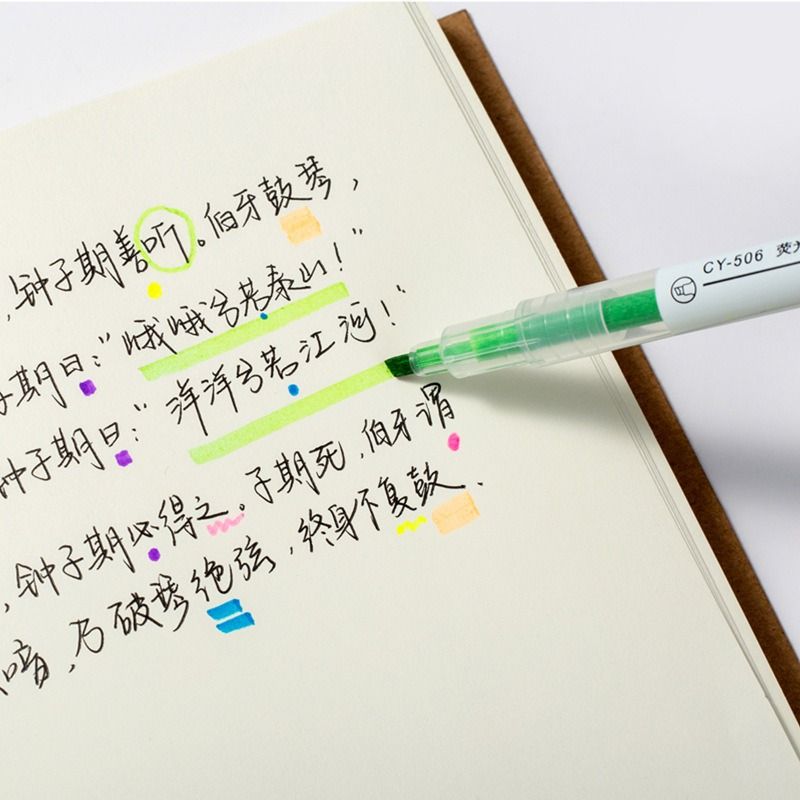 ，钟子期善听。伯牙鼓琴，
子期曰：“哦哦兮若泰山！”
钟子期曰：“洋洋兮若江河！”
，钟子期必得之。子期死，伯牙谓
音，乃破琴绝弦，终身不复鼓.
CY-506 荧光